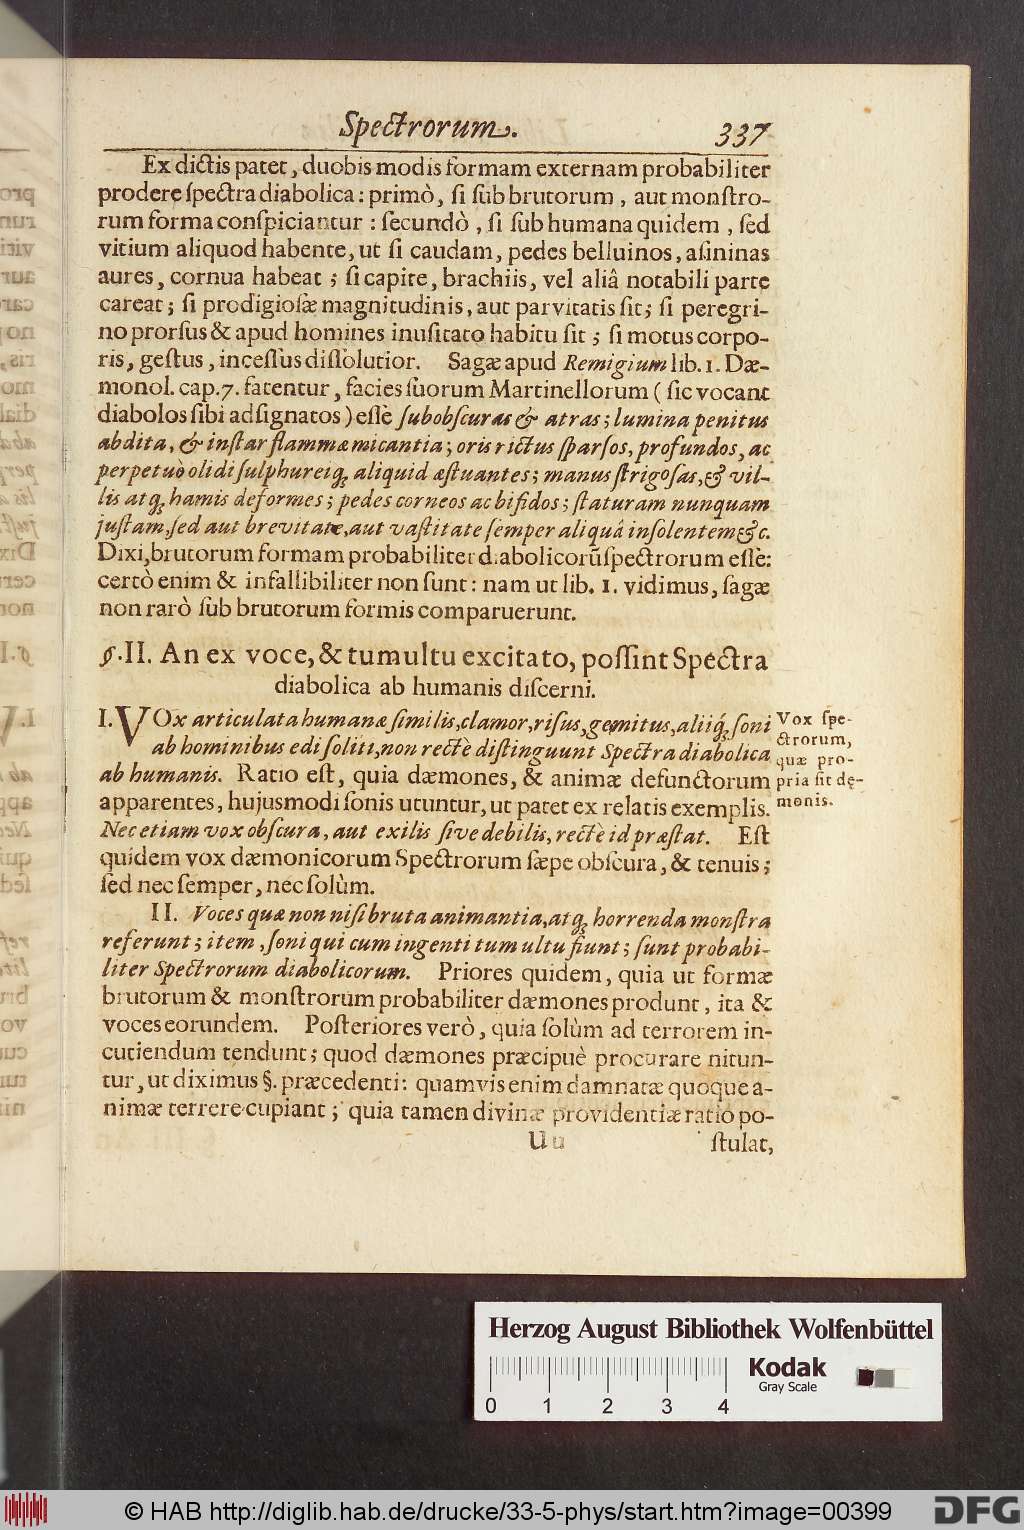 Spectrorum. 337
Ex dictis patet, duobis modis formam externam probabiliter
prodere ſpectra diabolica: primò, ſi ſub brutorum, aut monſtro-
rum forma conſpiciantur: ſecundò, ſi ſub humana quidem, ſed
vitium aliquod habente, ut ſi caudam, pedes belluinos, aſininas
aures, cornua habeat; ſi capite, brachiis, vel aliâ notabili parte
careat; ſi prodigioſæ magnitudinis, aut parvitatis ſit; ſi peregri-
no prorſus & apud homines inuſitato habitu ſit; ſi motus corpo-
ris, geſtus, inceſſus diſſolutior. Sagæ apud Remigium lib. 1. Dæ-
monol. cap. 7. fatentur, facies ſuorum Martinellorum (ſic vocant
diabolos ſibi adſignatos) eſſe ſubobſcuras & atras; lumina penitus
abdita, & inſtar flammæ micantia; oris rictus ſparſos, profundos, ac
perpetuò olidi ſulphureiq; aliquid æſtuantes; manus ſtrigoſas, & vil-
lis atq; hamis deformes; pedes corneos ac bifidos; ſtaturam nunquam
juſtam, ſed aut brevitate, aut vaſtitate ſemper aliquâ inſolentem &c.
Dixi, brutorum formam probabiliter diabolicorũ ſpectrorum eſſe:
certò enim & infallibiliter non ſunt: nam ut lib. 1. vidimus, ſagæ
non rarò ſub brutorum formis comparuerunt.
§. II. An ex voce, & tumultu excitato, poſſint Spectra
diabolica ab humanis diſcerni.
I. VOx articulata humanæ ſimilis, clamor, riſus, gemitus, aliiq; ſoni
ab hominibus edi ſoliti, non rectè diſtinguunt Spectra diabolica
ab humanis. Ratio eſt, quia dæmones, & animæ defunctorum
apparentes, hujusmodi ſonis utuntur, ut patet ex relatis exemplis.
Nec etiam vox obſcura, aut exilis ſive debilis, rectè id præſtat. Eſt
quidem vox dæmonicorum Spectrorum ſæpe obſcura, & tenuis;
ſed nec ſemper, nec ſolùm.
Vox ſpe-
ctrorum,
quæ pro-
pria ſit dę-
monis.
II. Voces quæ non niſi bruta animantia, atq; horrenda monſtra
referunt; item, ſoni qui cum ingenti tumultu fiunt; ſunt probabi-
liter Spectrorum diabolicorum. Priores quidem, quia ut formæ
brutorum & monſtrorum probabiliter dæmones produnt, ita &
voces eorundem. Poſteriores verò, quia ſolùm ad terrorem in-
cutiendum tendunt; quod dæmones præcipuè procurare nitun-
tur, ut diximus §. præcedenti: quamvis enim damnatæ quoque a-
nimæ terrere cupiant; quia tamen divinæ providentiæ ratio po-
Uu ſtulat,
Herzog August Bibliothek Wolfenbüttel
Kodak
Gray Scale
0 1 2 3 4
© HAB http://diglib.hab.de/drucke/33-5-phys/start.htm?image=00399
DFG